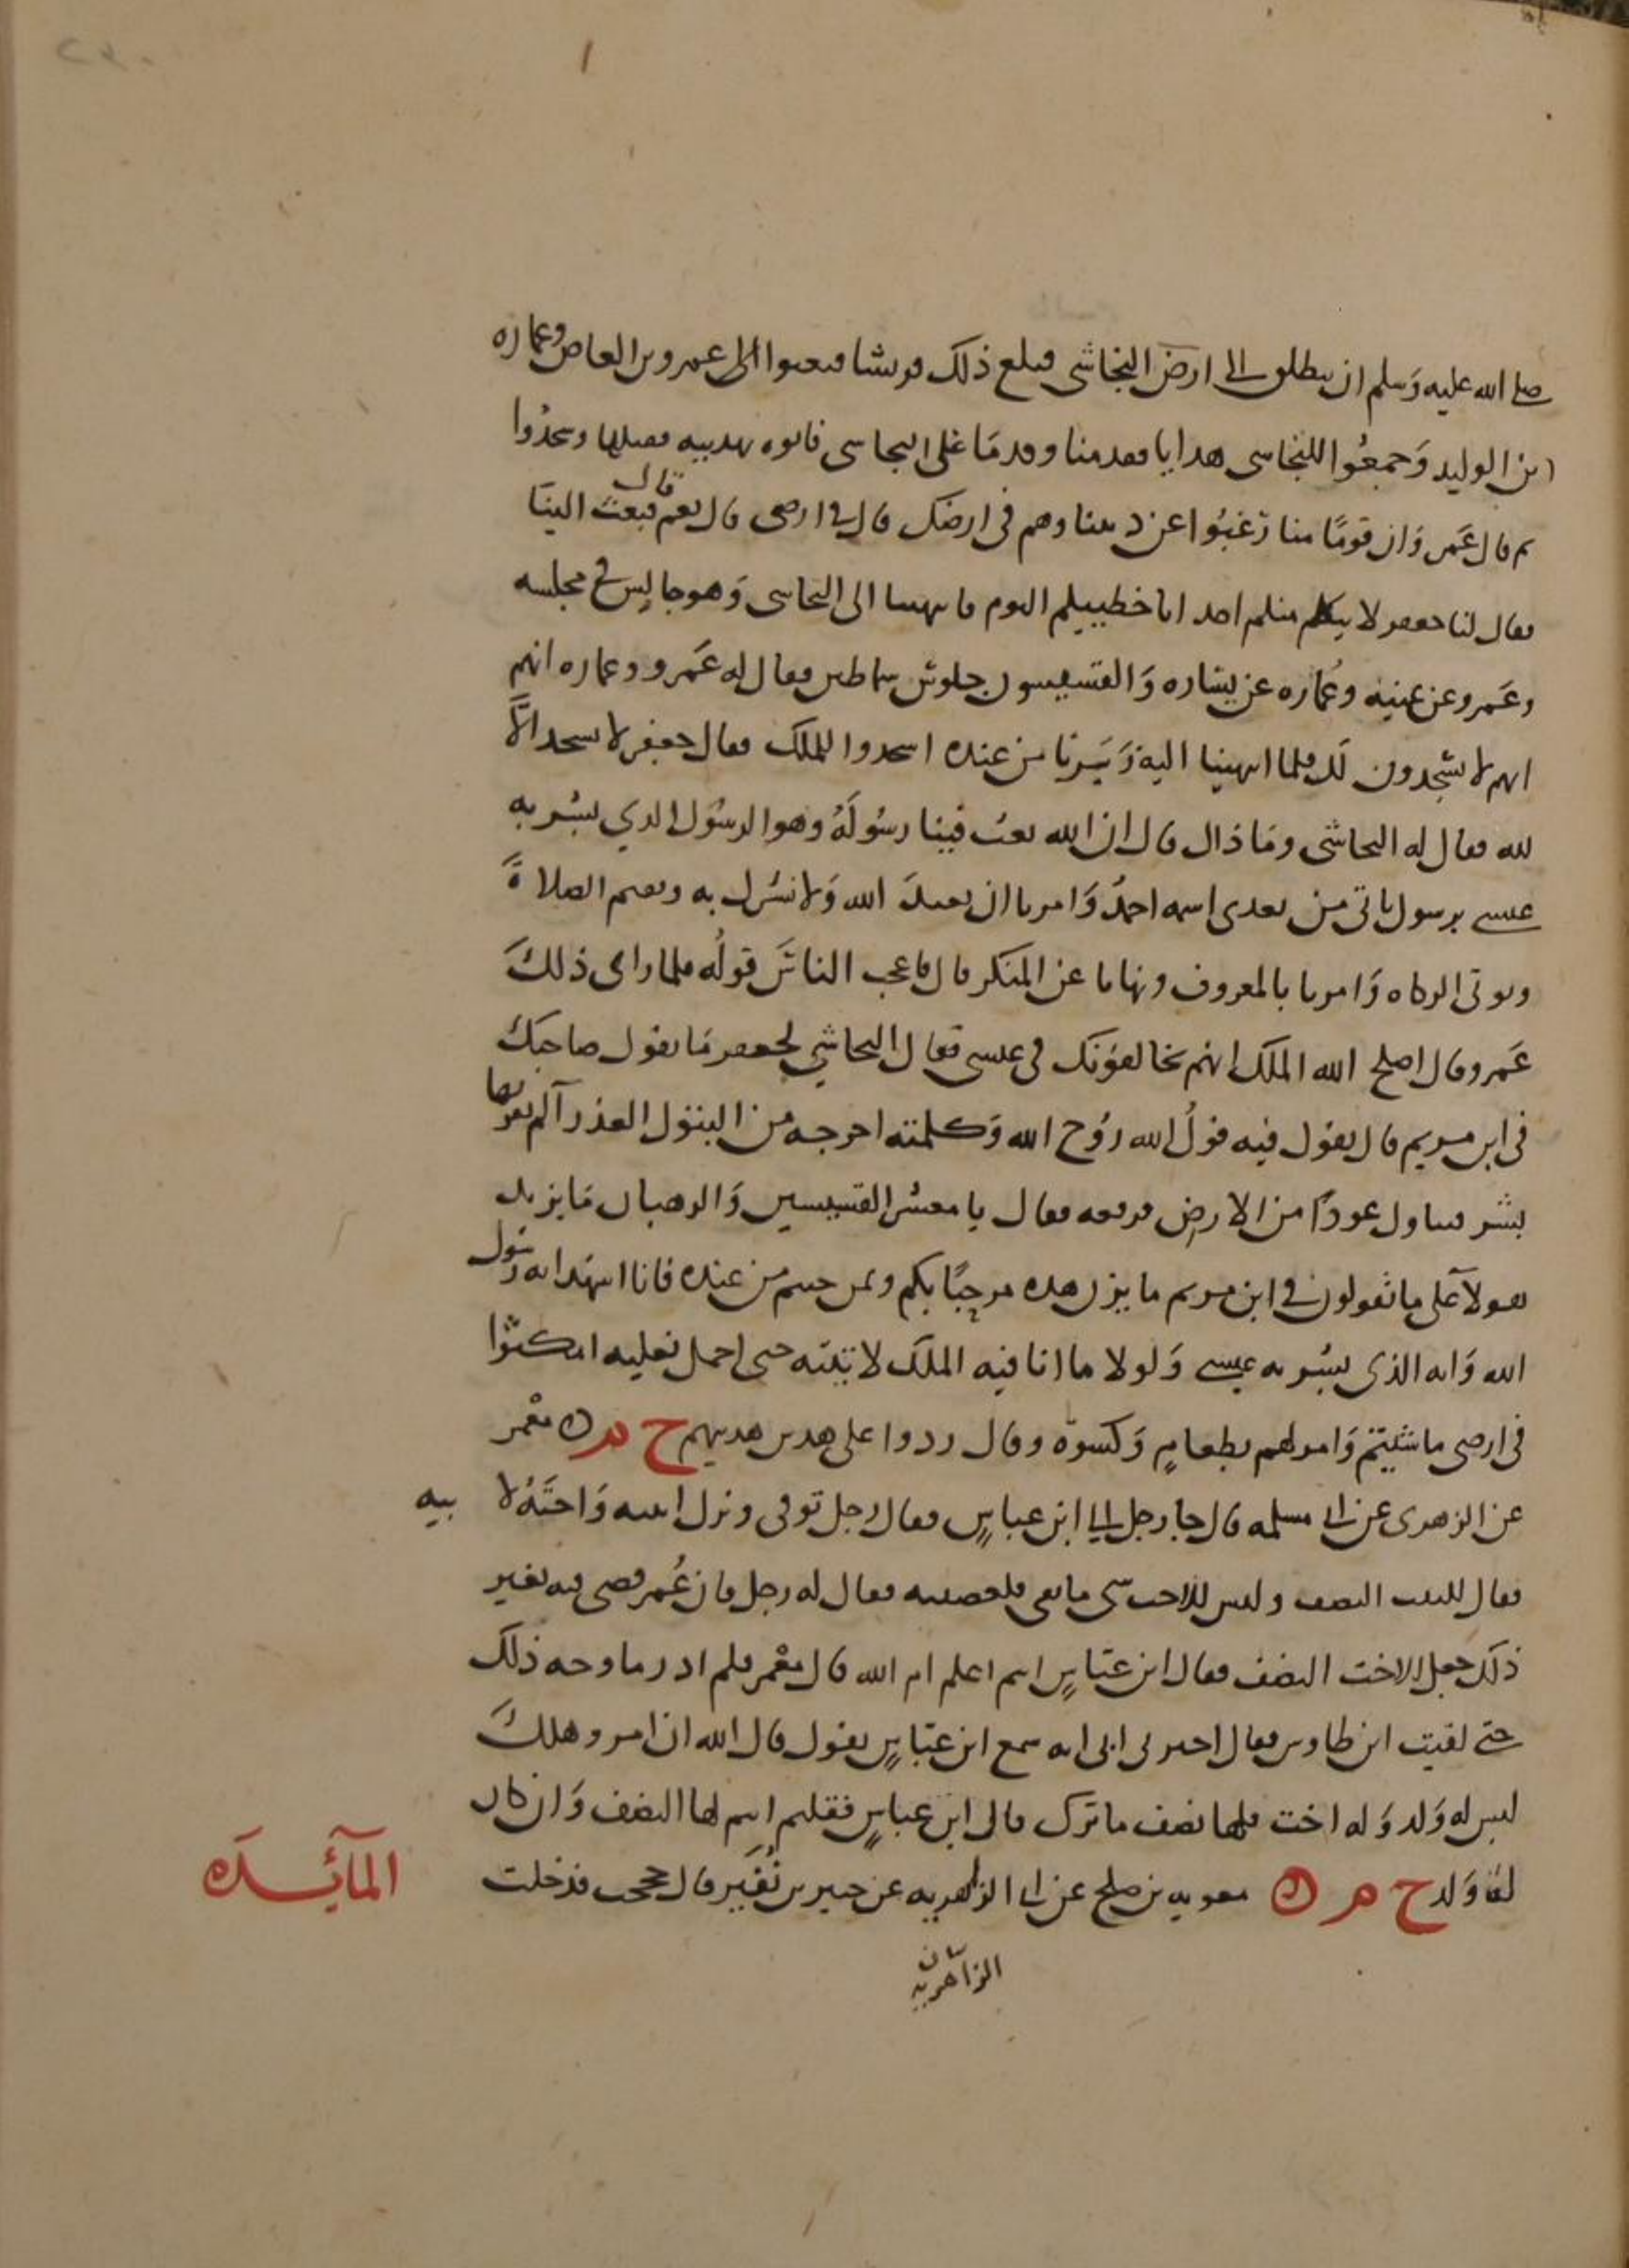 صلى الله عليه وسلم ان ينطلق الى ارض النجاشى فبلغ ذلك قريشا فبعثوا الى عمرو بن العاص وعماره
ابن الوليد وجمعوا للنجاسى هدايا فقدمنا وقدما على النجاسى فاتوه بهديه فقبلها وسجدوا
ثم قال عمر وان قوما منا رغبوا عن ديننا وهم فى ارضك قال فى ارضى قال نعم قال فبعث الينا
فقال لنا جعفر لا يتكلم منكم احد انا خطيبكم اليوم فانتهينا الى النجاسى وهو جالس فى مجلسه
وعمرو عن يمينه وعماره عن يساره والقسيسون جلوس سماطين فقال له عمرو وعماره انهم
انهم لا يسجدون لك فلما انتهينا اليه من عنده اسجدوا للملك فقال جعفر لا نسجد الا
لله فقال له النجاشى وما ذاك قال ان الله بعث فينا رسوله وهو الرسول الذي بشر به
عيسى برسول ياتى من بعدى اسمه احمد وامرنا ان نعبد الله ولا نشرك به ونقيم الصلاة
ونوتى الزكاه وامرنا بالمعروف ونهانا عن المنكر قال فاعجب الناس قوله فلما راى ذلك
عمرو قال اصلح الله الملك انهم يخالفونك فى عيسى فقال النجاشي لجعفر ما يقول صاحبك
فى ابن مريم قال يقول فيه قول الله روح الله وكلمته اخرجه من البتول العذرآ لم يقربها
بشر فتناول عودا من الارض فرفعه فقال يا معشر القسيسين والرهبان ما يزيد
هولآ على ما تقولون فى ابن مريم ما يزن هذه مرحبا بكم وبمن جيتم من عنده فانا اشهد انه رسول
الله وانه الذى بشر به عيسى ولولا ما انا فيه الملك لاتيته حتى احمل نعليه امكثوا
فى ارضى ما شيتم وامر لهم بطعام وكسوة وقال ردوا على هذين هديتهم ح م ن معمر
عن الزهرى عن ابى سلمه قال جا رجل الى ابن عباس فقال رجل توفى وترك ابنته واخته لابيه
فقال للبنت النصف وليس للاخت شى ما بقى فلعصبته فقال له رجل فان عمر قضى فيه بغير
ذلك جعل للاخت النصف فقال ابن عباس انتم اعلم ام الله قال معمر فلم ادر ما وجه ذلك
حتى لقيت ابن طاوس فقال اخبرنى ابى انه سمع ابن عباس يقول قال الله ان امرو هلك
ليس له ولد وله اخت فلها نصف ما ترك قال ابن عباس فقلتم انتم لها النصف وان كان
له ولد ح م ن معويه بن صلح عن ابى الزاهريه عن جبير بن نفير قال حججت فدخلت
المآئدة
الزاهريه